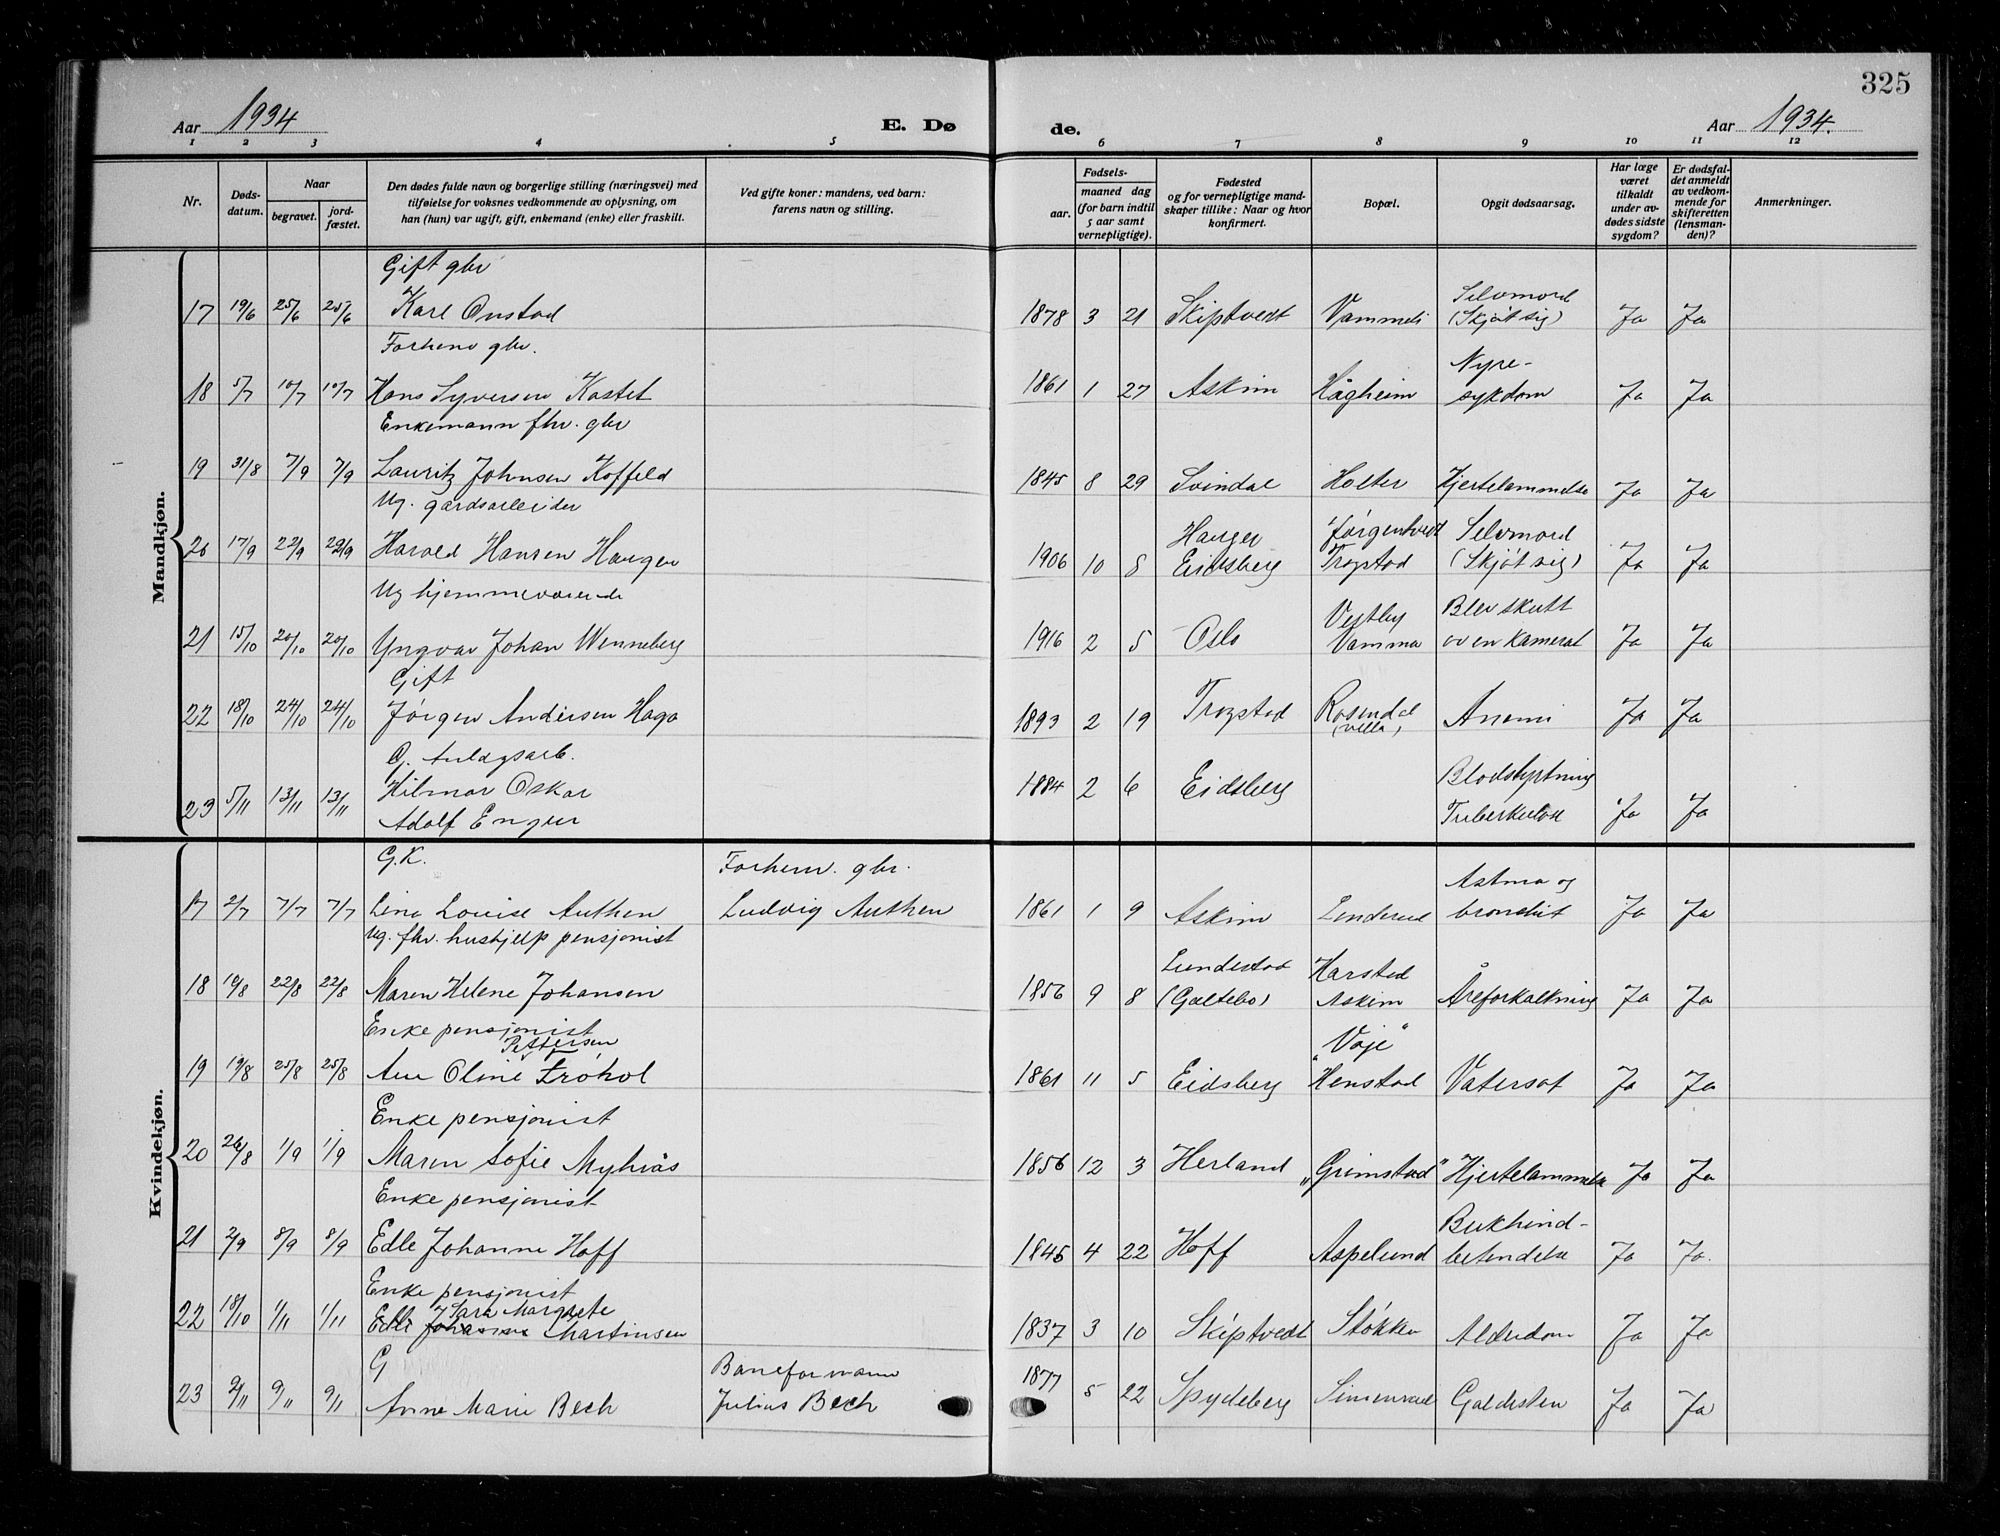 325
Aar 1934 E. Dø de. Aar 1934.
1 2 3 4 5 6 7 8 9 10 11 12
Nr. Døds-datum. Naar begravet. jord-fæstet. Den dødes fulde navn og borgerlige stilling (næringsvei) med tilføielse for voksnes vedkommende av oplysning, om han (hun) var ugift, gift, enkemand (enke) eller fraskilt. Ved gifte koner: mandens, ved barn: farens navn og stilling. Fødsels- aar. maaned dag (for barn indtil 5 aar samt vernepligtige). Fødested og for vernepligtige mand-skaper tillike: Naar og hvor konfirmert. Bopæl. Opgit dødsaarsag. Har læge været tilkaldt under av-dødes sidste sygdom? Er dødsfal-det anmeldt av vedkom-mende for skifteretten (lensman-den)? Anmerkninger.
Mandkjøn.
Gift gbr
17 19/6 25/6 25/6 Karl Onstad 1878 3 21 Skiptvedt Vammeli Selvmord (Skjøt sig) Ja Ja
Forhenv gbr.
18 5/7 10/7 10/7 Hans Syversen Kastet 1861 1 27 Askim Hågheim Nyre-sykdom Ja Ja
Enkemann fhv. gbr
19 31/8 7/9 7/9 Lauritz Johnsen Koffeld 1845 8 29 Svindal Holter Hjertelammelse Ja Ja
Ug. gårdsarbeider
20 17/9 22/9 22/9 Harald Hansen Haugen 1906 10 8 Haugen Eidsberg Jørgentvedt Trøgstad Selvmord (Skjøt sig) Ja Ja
Ug hjemmeværende
21 15/10 20/10 20/10 Yngvar Johan Wenneberg 1916 2 5 Oslo Vestby Vamma Blev skutt av en kamerat Ja Ja
Gift
22 18/10 24/10 24/10 Jørgen Andersen Haga 1893 2 19 Trøgstad Rosendal (villa) Anemi Ja Ja
G. Anlegsarb.
23 5/11 13/11 13/11 Hilmar Oskar Adolf Enger 1884 2 6 Eidsberg Blodstyrtning Tuberkulose Ja Ja
Kvindekjøn.
G.K. Forhenv. gbr.
17 2/7 7/7 7/7 Lina Louise Authen Ludvig Authen 1861 1 9 Askim Lenderud Astma og bronchit Ja Ja
Ug. fhv. hushjelp pensjonist
18 19/8 22/8 22/8 Maren Helene Johansen 1856 9 8 Lundestad (Galtebo) Harstad Askim Åreforkalkning Ja Ja
Enke pensjonist
19 19/8 25/8 25/8 Ane Oline Pettersen Frøhol 1861 11 5 Eidsberg "Voje" Henstad Vatersot Ja Ja
Enke pensjonist
20 26/8 1/9 1/9 Maren Sofie Myhrås 1856 12 3 Herland "Grimstad" Hjertelammelse Ja Ja
Enke pensjonist
21 2/9 8/9 8/9 Edle Johanne Hoff 1845 4 22 Hoff Aspelund Bukhind-betendelse Ja Ja.
Enke pensjonist
22 18/10 1/11 1/11 Edle Johanne Sara Margrete Martinsen 1837 3 10 Skiptvedt Støkken Alderdom Ja Ja
G Baneformann
23 2/11 9/11 9/11 Anne Marie Bech Julius Bech 1877 5 22 Spydeberg Simenrud Galdesten Ja Ja